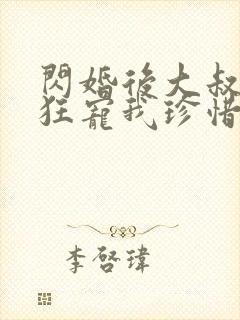 閃婚後大叔
狂寵我珍惜
李啓瑋